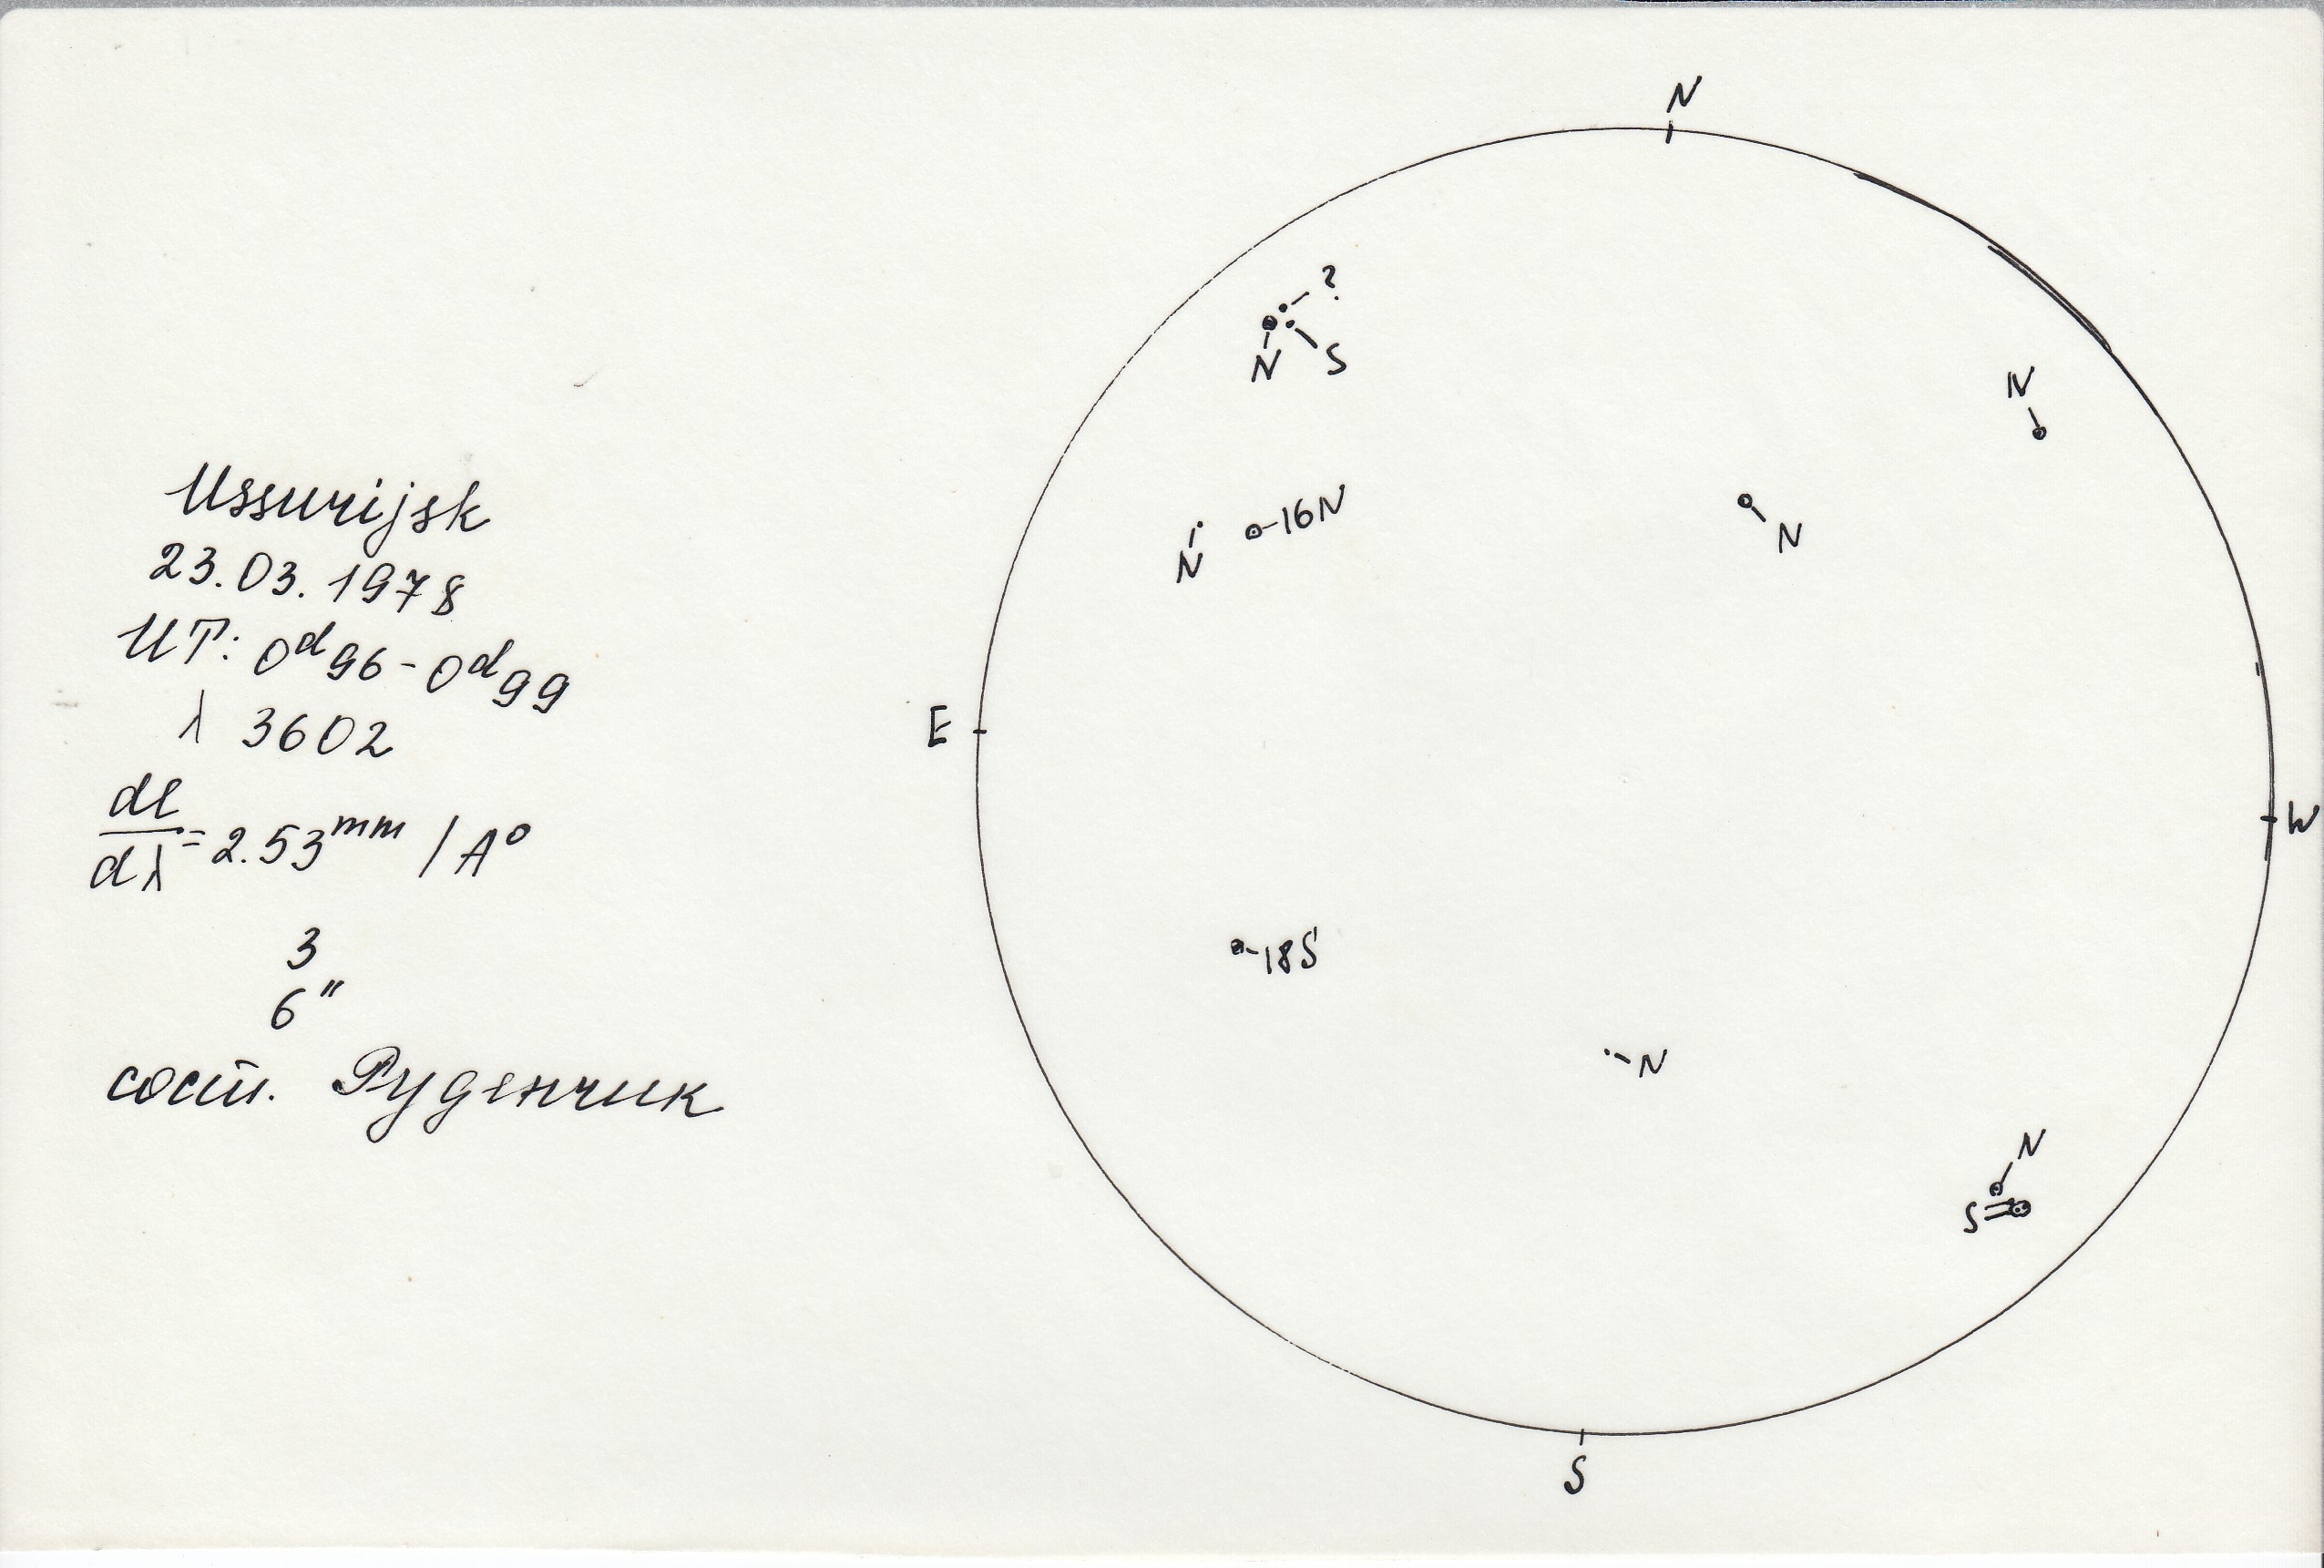 Ussurijsk
23.03.1978
UT: 0ᵈ96 - 0ᵈ99
λ 3602
dl
dλ = 2.53ᵐᵐ / A°
3
6"
сост. Руденчик
N
?
N S
N
16N
N
N
E
W
18S
N
N
S
S